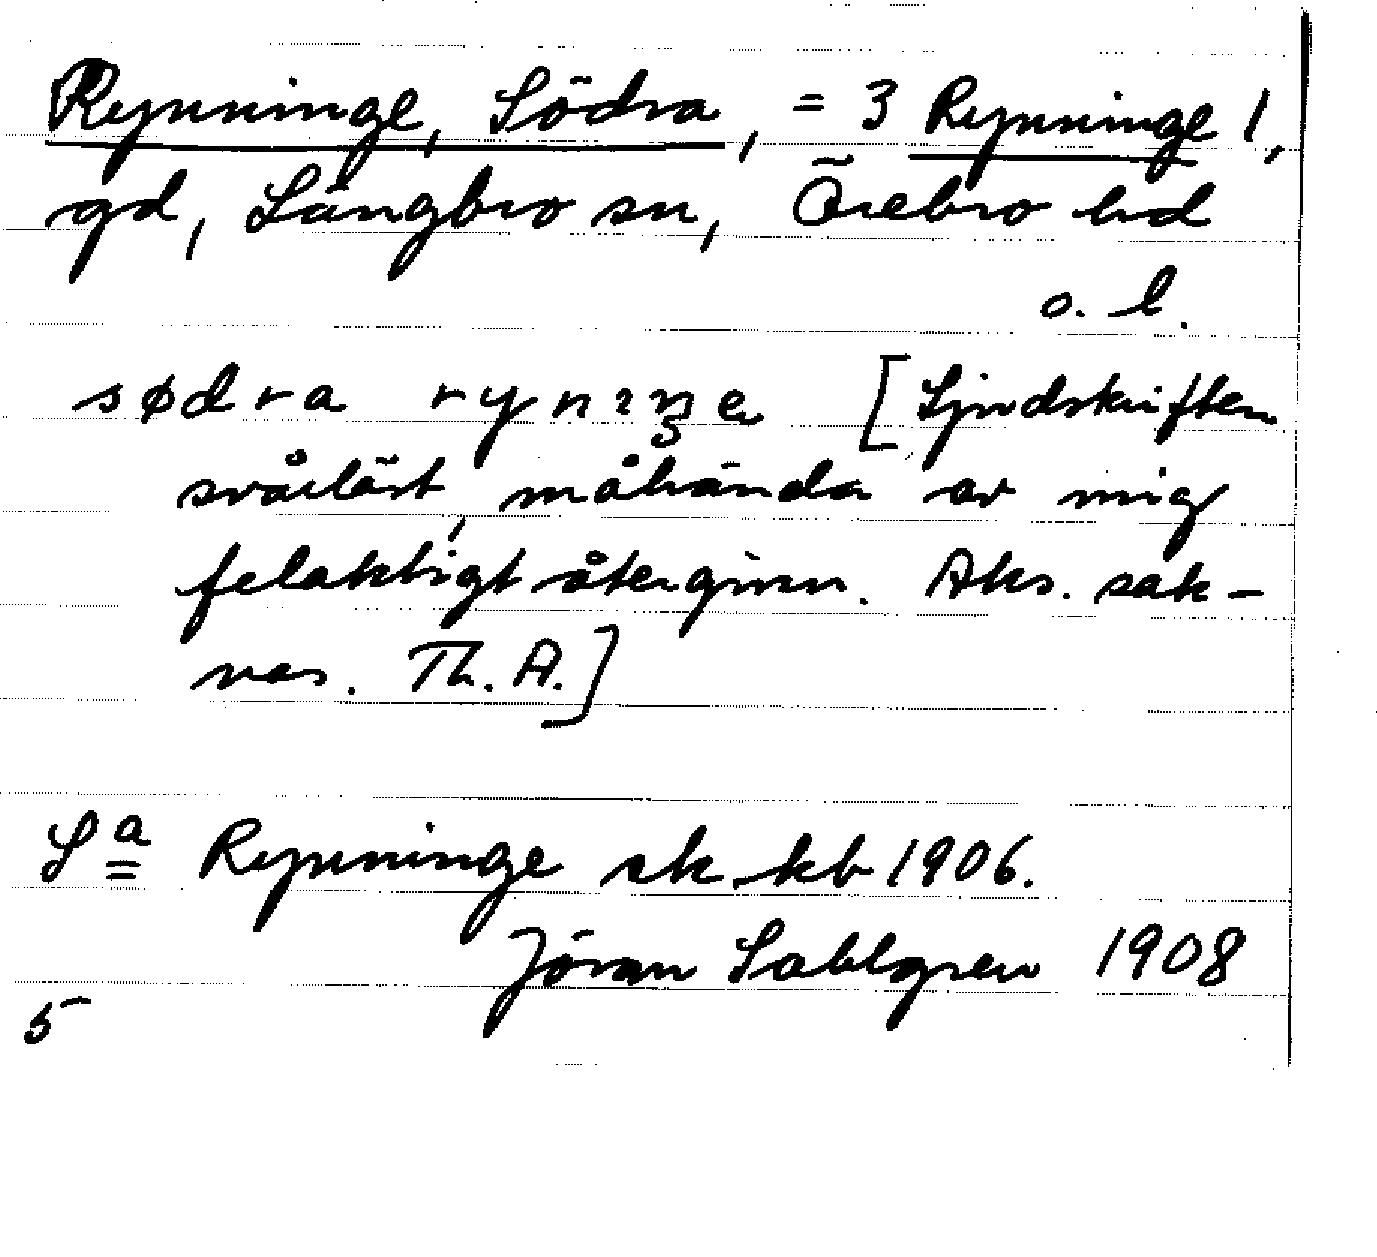 Rynninge, Södra, = 3 Rynninge 1,
gd, Längbro sn, Örebro hd
ö. l.
sødra
[Ljudskriften
svårläst, måhända av mig
felaktigt återgiven. Aks. sak-
nas. Th. A.]
Sª Rynninge sk kb 1906.
Jöran Sahlgren 1908
5